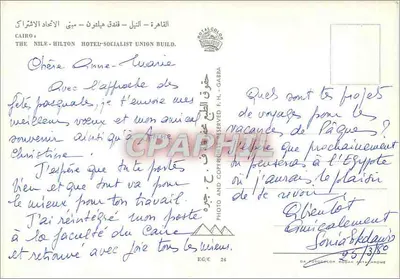 القاهرة - النيل - فندق هيلتون - مبنى الاتحاد الاشتراكى
CAIRO:
THE NILE-HILTON HOTEL-SOCIALIST UNION BUILD.
Chère Anne-Marie
Avec l'approche des
fêtes pascales, je t'envoie mes
meilleurs vœux et mon amical
souvenir ainsi qu'à
Christine.
J'espère que tu te portes
bien et que tout va pour
le mieux pour ton travail.
J'ai réintégré mon poste
à la faculté du Caire
et retrouvé avec joie tous les miens.
حقوق الطبع
PHOTO AND COPYRIGHT RESERVED K.H.-GABRA
Quels sont tes projets
de voyages pour les
vacances de Pâques?
J'espère que prochainement
tu penseras à l'Egypte
où j'aurai le plaisir
de te revoir.
A bientôt
Amicalement
Sonia
25/3/80
EGY 28
CPAPHIL